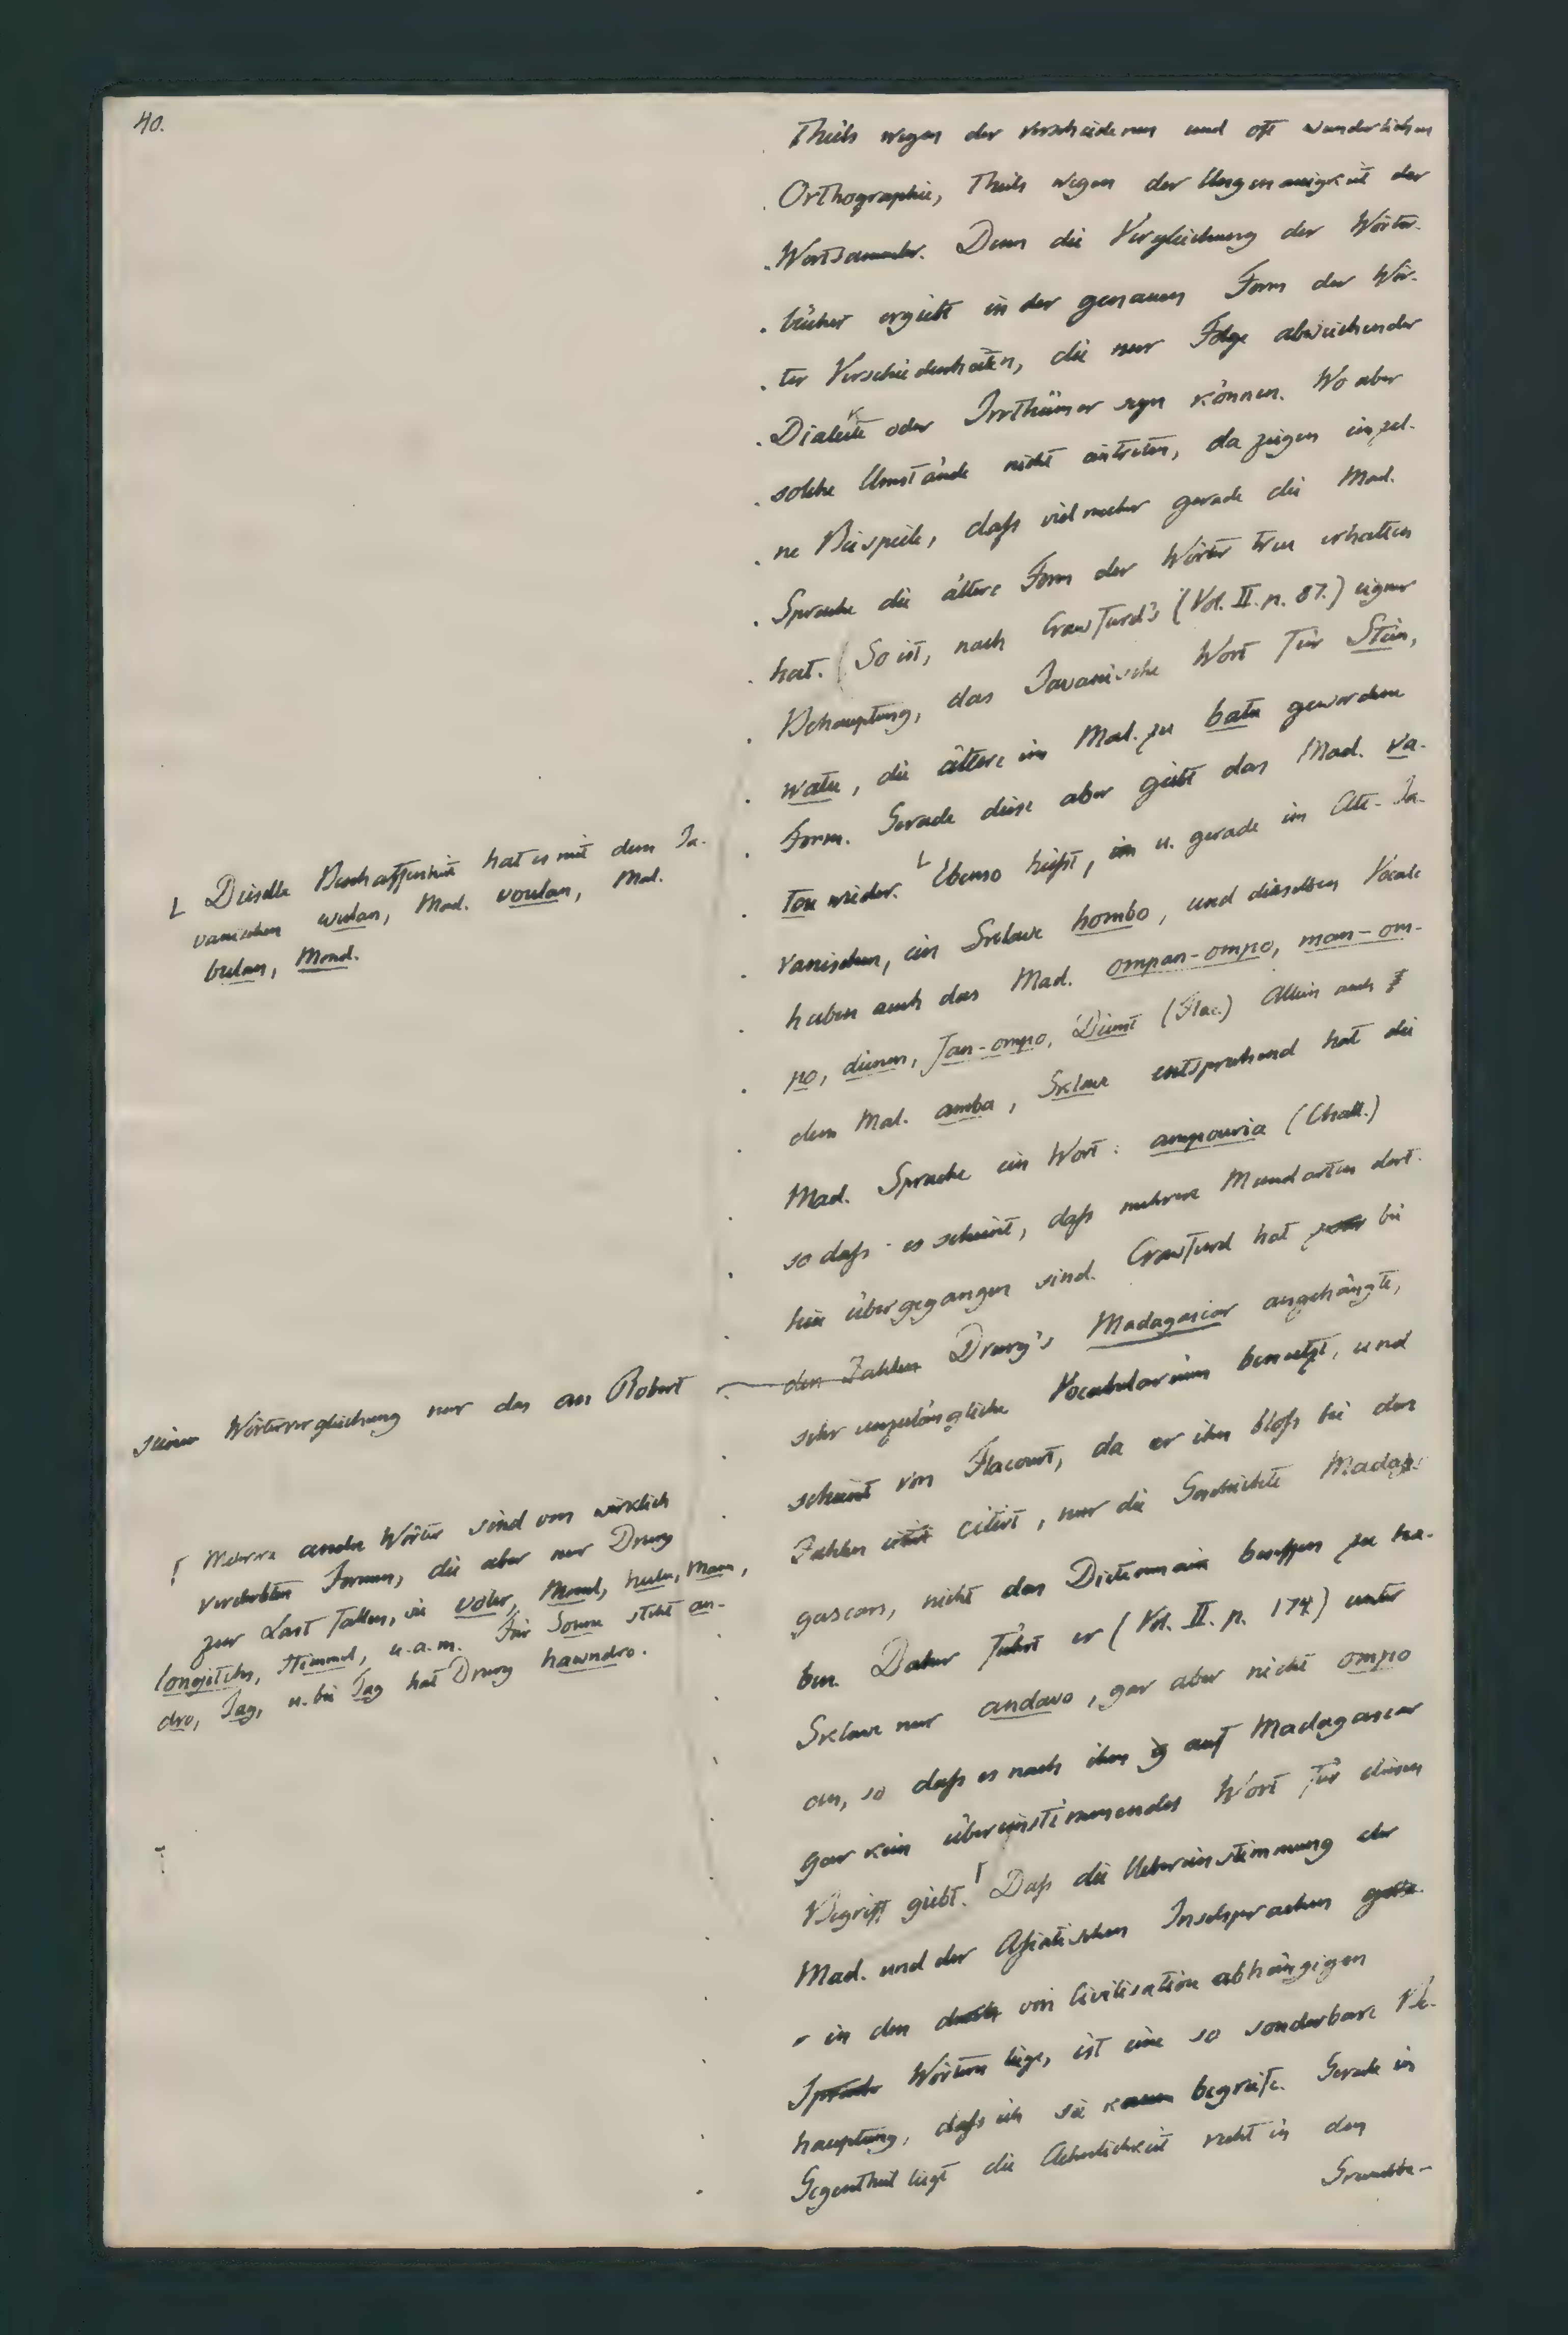 40.
Theils wegen der verschiedenen und oft wunderlichen
Orthographie, Theils wegen der Ungenauigkeit der
Wortsammler. Denn die Vergleichung der Wörter-
bücher ergiebt in der genauen Form der Wör-
ter Verschiedenheiten, die nur Folge abweichender
Dialekte oder Irrthümer seyn können. Wo aber
solche Umstände nicht eintreten, da zeigen einzel-
ne Beispiele, daß vielmehr gerade die Mad.
Sprache die ältere Form der Wörter treu erhalten
hat. (So ist, nach Crawfurd's (Vol. II. p. 87.) eigner
Behauptung, das Javanische Wort für Stein,
watu, die ältere im Mal. zu batu gewordene
Form. Gerade diese aber giebt das Mad. va-
tou wieder. Ebenso heißt, im u. gerade im Alt-Ja-
vanischen, ein Sclave hombo, und dieselben Vocale
haben auch das Mad. ompan-ompo, man-om-
po, dienen, fan-ompo, Dienst (Flac.) Allein auch
dem Mal. amba, Sclave entsprechend hat die
Mad. Sprache ein Wort: ampouria (Chall.)
so daß es scheint, daß mehrere Mundarten dort-
hin übergegangen sind. Crawfurd hat zwar bei
den Zahlen Drury's Madagascar angehängte,
sehr unzulängliche Vocabularium benutzt, und
scheint von Flacourt, da er ihn bloß bei den
Zahlen citirt, nur die Geschichte Mada-
gascars, nicht das Dictionnaire besessen zu ha-
ben. Daher führt er (Vol. II. p. 174.) unter
Sclave nur andavo, gar aber nicht ompo
an, so daß es nach ihm auf Madagascar
gar kein übereinstimmendes Wort für diesen
Begriff giebt. Daß die Uebereinstimmung der
Mad. und der Asiatischen Inselsprachen
in den durch von Civilisation abhängigen
Sprache Wörtern liege, ist eine so sonderbare Be-
hauptung, daß ich sie kaum begreife. Gerade im
Gegentheil liegt die Aehnlichkeit recht in den
Grundbe-
L Dieselbe Beschaffenheit hat es mit dem Ja-
vanischen wulan, Mad. voulan, Mal.
bulan, Mond.
seiner Wörtervergleichung nur das an Robert
Γ Mehrere andre Wörter sind von wirklich
verderbten Formen, die aber nur Drury
zur Last fallen, wie voler, Mond, hulu, Mann,
longitchs, Himmel, u.a.m. Für Sonne steht an-
dro, Tag, u. bei Tag hat Drury hawndro.